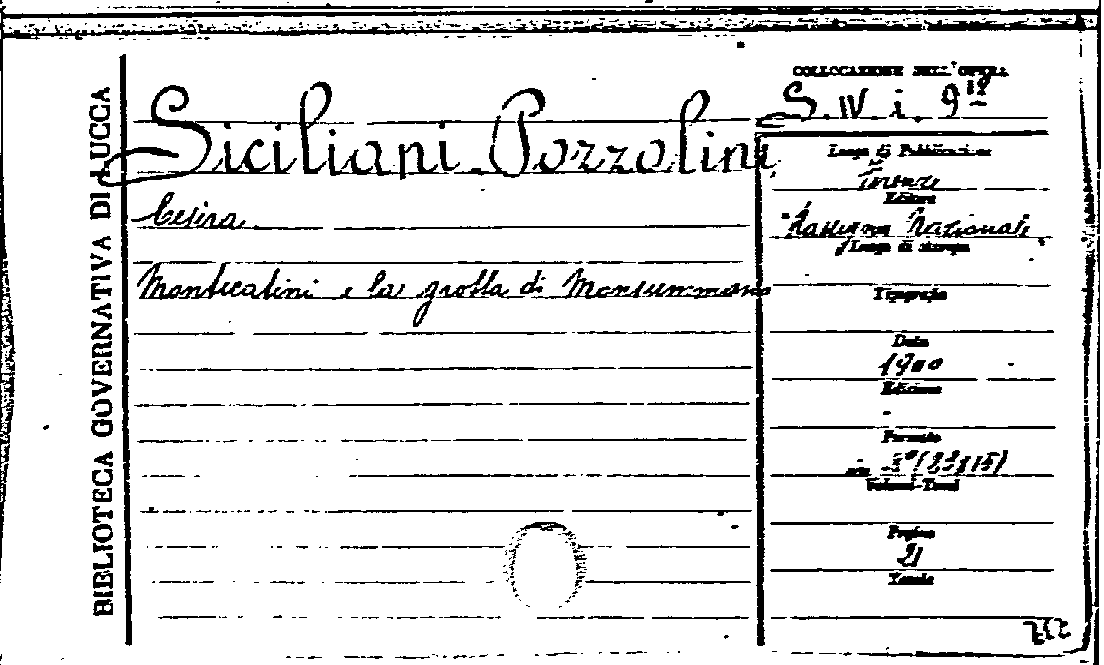 BIBLIOTECA GOVERNATIVA DI LUCCA
Siciliani Pozzolini
Cesira
Montecatini e la grotta di Monsummano
COLLOCAZIONE DELL'OPERA
S. IV. i. 9 18
Luogo di Pubblicazione
Firenze
Editore
"Rassegna Nazionale"
Luogo di stampa
Tipografia
Data
1900
Edizione
-
Formato
in 8° (23x15)
Volumi-Tomi
Pagine
21
Tavole